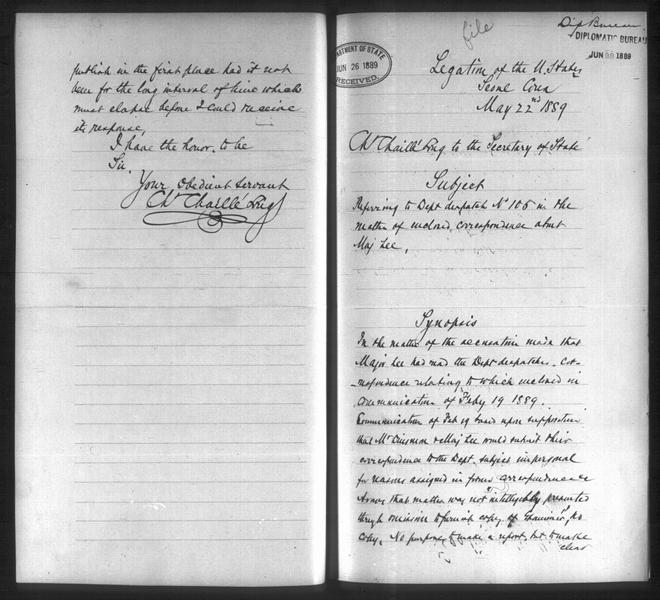 publish in the first place had it not
been for the long interval of time which
must elapse before I could receive
its response,
I have the honor, to be
Sir,
Your Obedient Servant
Ch^s Chaillé Long
file
Dip Bureau
DIPLOMATIC BUREAU
JUN 1889
DEPARTMENT OF STATE
JUN 26 1889
RECEIVED.
Legation of the U. States
Seoul Corea
May 22nd 1889
Ch^s Chaillé Long to the Secretary of State
Subject
Referring to Dept despatch No 105 in the
matter of inclosed correspondence about
Maj Lee,
Synopsis
In the matter of the accusation made that
Major Lee had read the Dept despatches. Cor-
-respondence relating to which inclosed in
communication of Feby 19 1889.
Communication of Feb 19 based upon supposition
that Mr Dinsmore & Maj Lee would submit their
correspondence to the Dept. subject impersonal
for reasons assigned in former correspondence
that matter was not intelligibly presented
through omission to furnish copy of no
copy. No purpose to make a report, but to make
clear